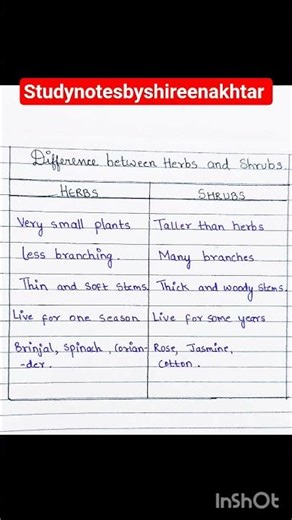 Studynotesbyshireenakhtar
Difference between Herbs and Shrubs
HERBS SHRUBS
Very small plants Taller than herbs
Less branching. Many branches
Thin and soft stems. Thick and woody stems.
Live for one season Live for some years
Brinjal, spinach, corian- Rose, Jasmine,
-der. cotton.
InShOt